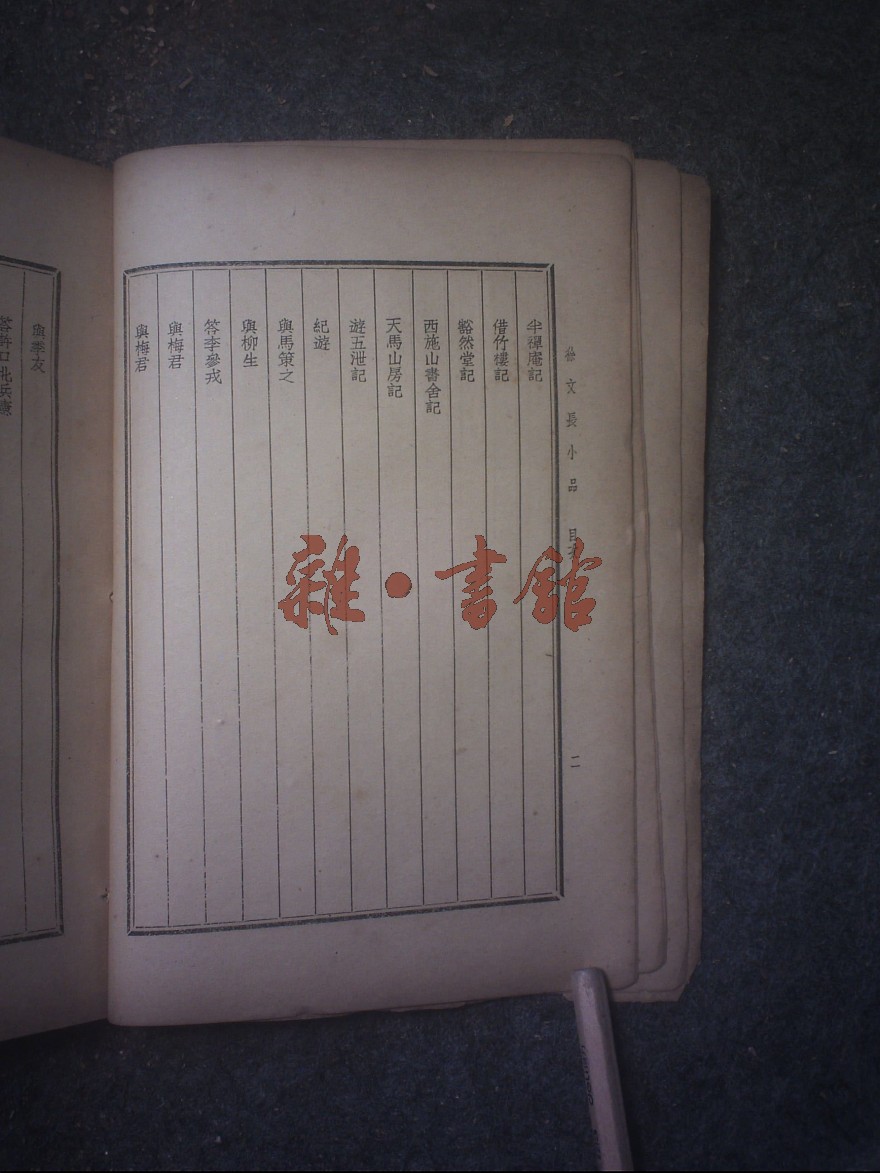 徐文長小品 目
二
半禪庵記
借竹樓記
豁然堂記
西施山書舍記
天馬山房記
遊五泄記
紀遊
與馬策之
與柳生
答李參戎
與梅君
與梅君
與季友
答許口北兵憲
雜·書館